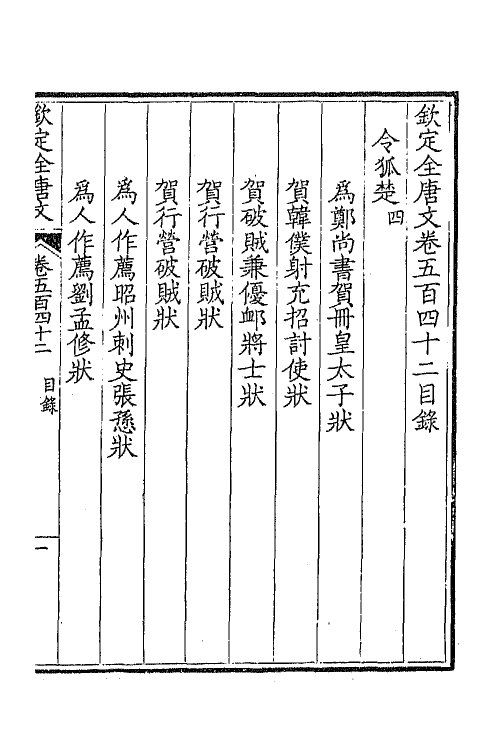 欽定全唐文卷五百四十二目錄
令狐楚四
爲鄭尚書賀冊皇太子狀
賀韓僕射充招討使狀
賀破賊兼優䘏將士狀
賀行營破賊狀
賀行營破賊狀
爲人作薦昭州刺史張愻狀
爲人作薦劉孟修狀
欽定全唐文 卷五百四十二 目錄 一